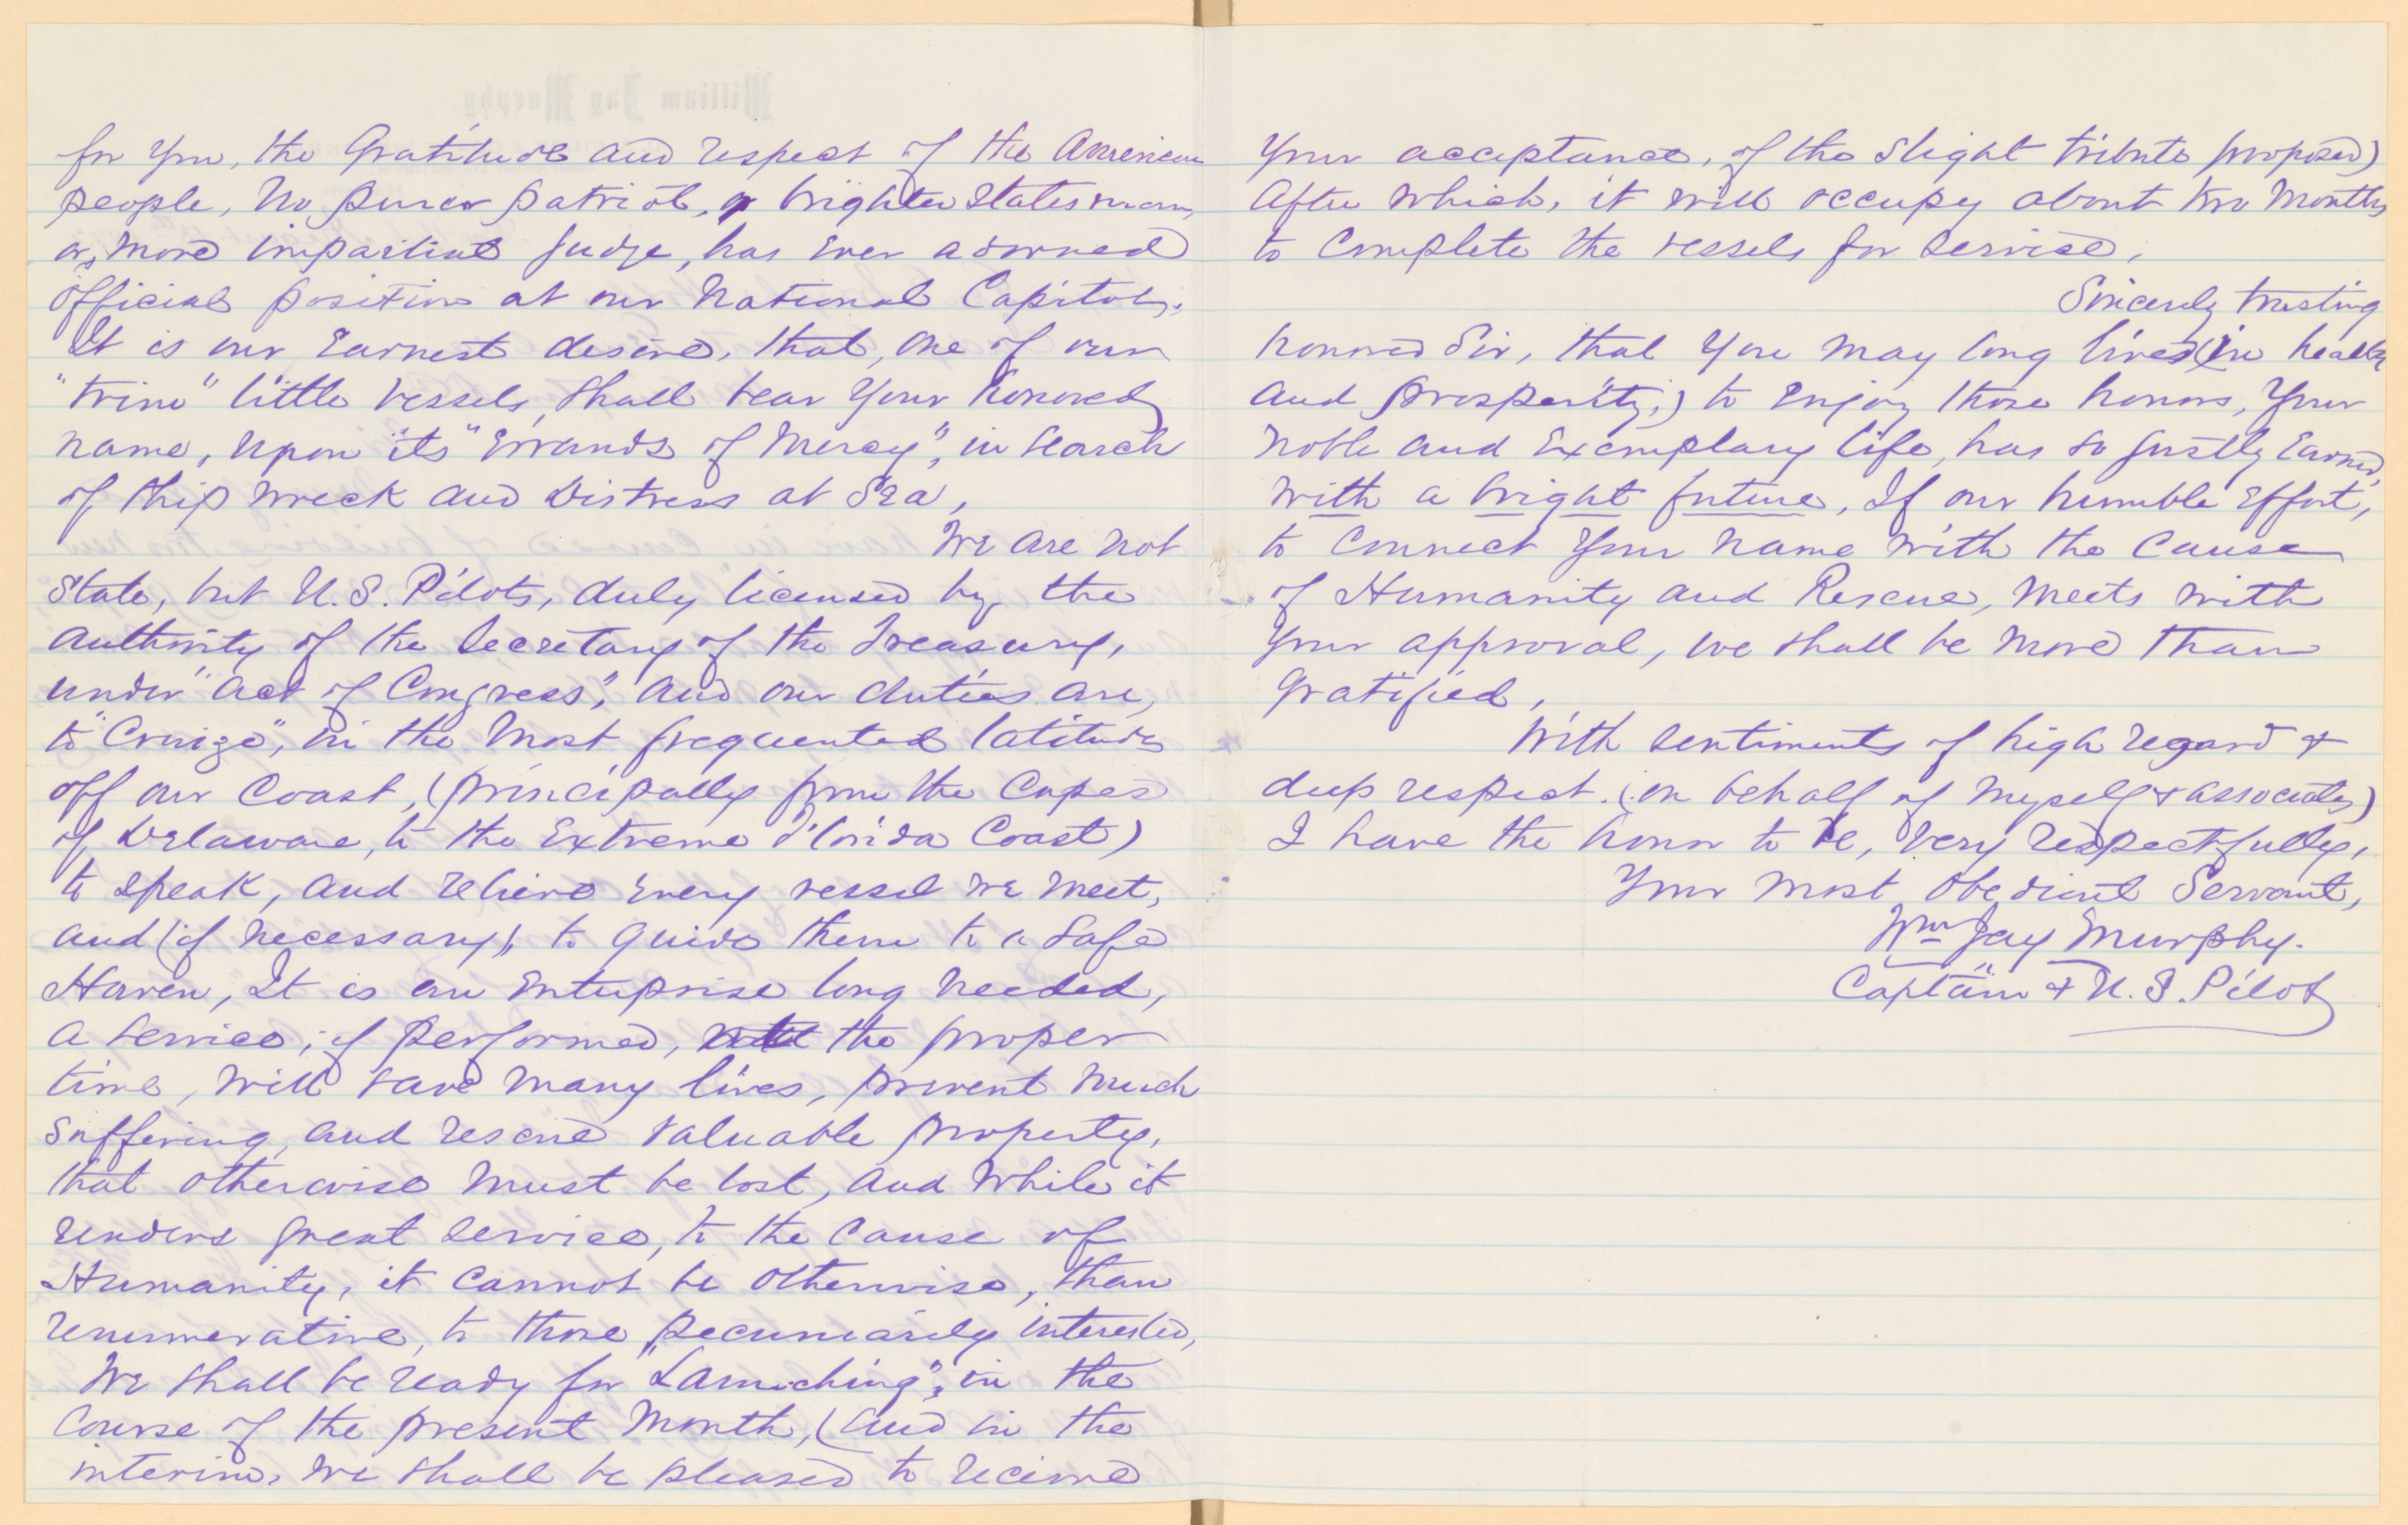 for You, the Gratitude and respect of the American
people, No purer patriot, or brighter Statesman,
or, more impartial Judge, has ever adorned
official position at our National Capitol,.
It is our Earnest desire, that, one of our
"trim" little vessels, shall bear Your honored
name, upon its "Errands of Mercy", in search
of ship wreck and Distress at Sea,
We are not
State, but U.S. Pilots, duly licensed by the
authority of the Secretary of the Treasury,
under "act of Congress", and our duties are,
to "Cruise", in the most frequented latitudes
off our Coast, (principally from the Capes
of Delaware, to the Extreme Florida Coast)
to speak, and relieve Every vessel we meet,
and (if necessary), to guide them to a safe
Haven, It is an Enterprise long needed,
a service, if performed, the proper
time, will save many lives, prevent much
suffering, and rescue valuable property,
that otherwise must be lost, and while it
renders great service, to the cause of
Humanity, it cannot be otherwise, than
remunerative, to those pecuniarily interested,
We shall be ready for "Launching", in the
course of the present month, (and in the
interim, we shall be pleased to receive
Your acceptance, of the slight tribute proposed)
After which, it will occupy about two months
to complete the vessels for service,
Sincerely trusting
honored Sir, that You may long live, (in health
and prosperity,) to Enjoy those honors, Your
noble and Exemplary life, has so justly Earned,
with a bright future, If our humble Effort,
to connect Your name with the cause
of Humanity and Rescue, meets with
Your approval, we shall be more than
Gratified,
With sentiments of high regard &
deep respect. (on behalf of myself & associates)
I have the honor to be, very respectfully,
Your most obedient Servant,
Wm Jay Murphy.
Captain & U.S. Pilot